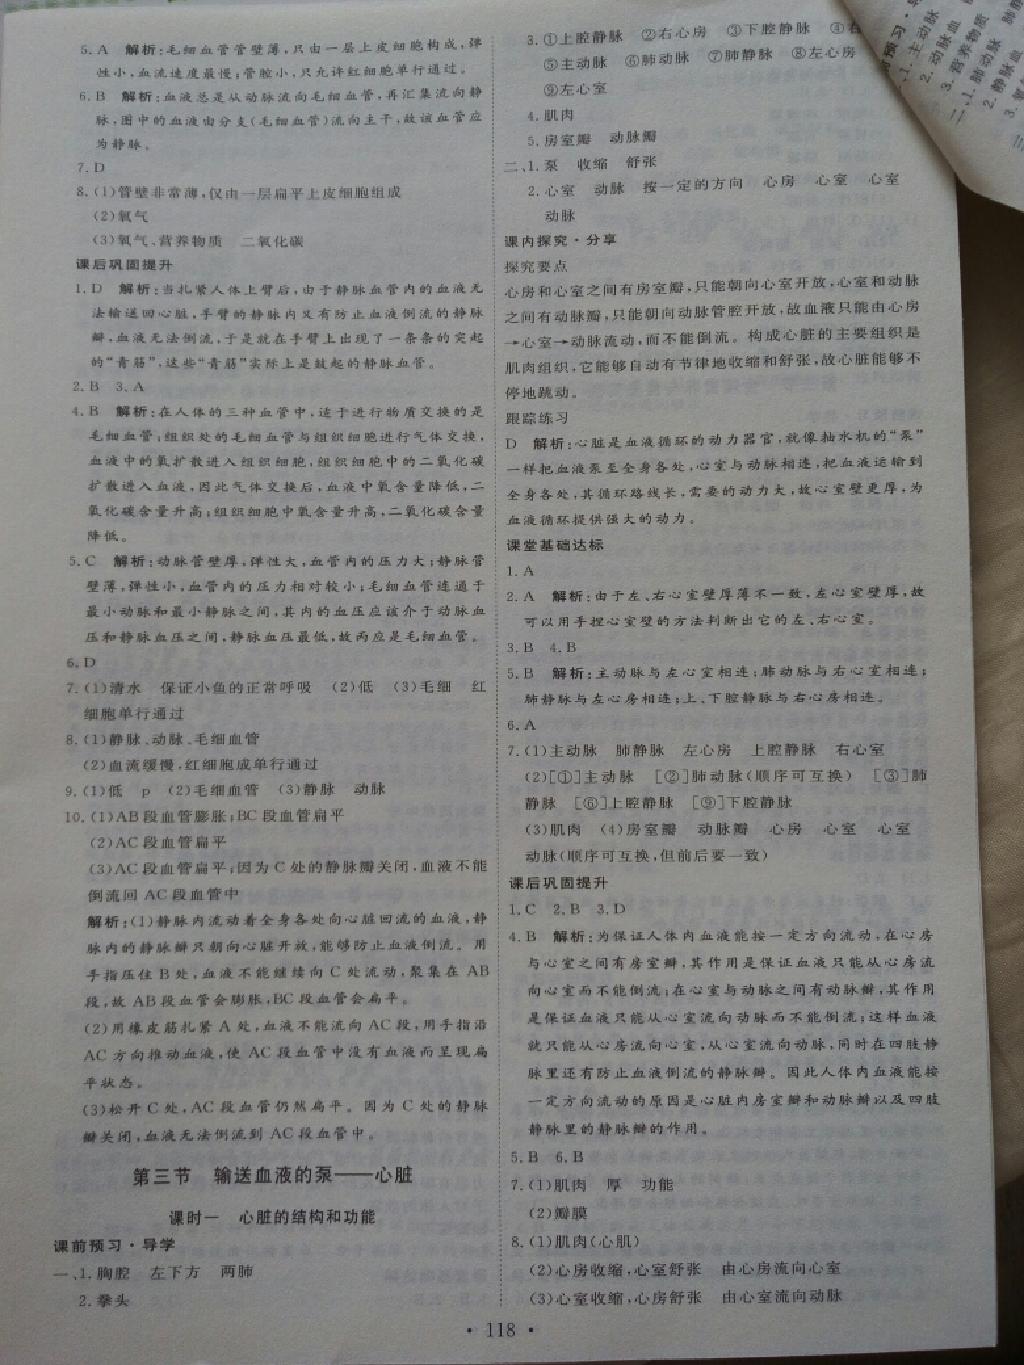 5. A 解析:毛细血管管壁薄,只由一层上皮细胞构成,弹
性小,血流速度最慢;管腔小,只允许红细胞单行通过。
6. B 解析:血液总是从动脉流向毛细血管,再汇集流向静
脉,图中的血液由分支(毛细血管)流向主干,故该血管应
为静脉。
7. D
8. (1)管壁非常薄,仅由一层扁平上皮细胞组成
(2)氧气
(3)氧气、营养物质 二氧化碳
课后巩固提升
1. D 解析:当扎紧人体上臂后,由于静脉血管内的血液无
法输送回心脏,手臂的静脉内又有防止血液倒流的静脉
瓣,血液无法倒流,于是就在手臂上出现了一条条的突起
的“青筋”,这些“青筋”实际上是鼓起的静脉血管。
2. B 3. A
4. B 解析:在人体的三种血管中,适于进行物质交换的是
毛细血管;组织处的毛细血管与组织细胞进行气体交换,
血液中的氧扩散进入组织细胞,组织细胞中的二氧化碳
扩散进入血液,因此气体交换后,血液中氧含量降低,二
氧化碳含量升高;组织细胞中氧含量升高,二氧化碳含量
降低。
5. C 解析:动脉管壁厚,弹性大,血管内的压力大;静脉管
壁薄,弹性小,血管内的压力相对较小;毛细血管连通于
最小动脉和最小静脉之间,其内的血压应该介于动脉血
压和静脉血压之间,静脉血压最低,故丙应是毛细血管。
6. D
7. (1)清水 保证小鱼的正常呼吸 (2)低 (3)毛细 红
细胞单行通过
8. (1)静脉、动脉、毛细血管
(2)血流缓慢,红细胞成单行通过
9. (1)低 p (2)毛细血管 (3)静脉 动脉
10. (1)AB段血管膨胀;BC段血管扁平
(2)AC段血管扁平
(3)AC段血管扁平;因为C处的静脉瓣关闭,血液不能
倒流回AC段血管中
解析:(1)静脉内流动着全身各处向心脏回流的血液,静
脉内的静脉瓣只朝向心脏开放,能够防止血液倒流。用
手指压住B处,血液不能继续向C处流动,聚集在AB
段,故AB段血管会膨胀,BC段血管会扁平。
(2)用橡皮筋扎紧A处,血液不能流向AC段,用手指沿
AC方向推动血液,使AC段血管中没有血液而呈现扁
平状态。
(3)松开C处,AC段血管仍然扁平。因为C处的静脉
瓣关闭,血液无法倒流到AC段血管中。
第三节 输送血液的泵——心脏
课时一 心脏的结构和功能
课前预习·导学
一、1. 胸腔 左下方 两肺
2. 拳头
3. ①上腔静脉 ②右心房 ③下腔静脉 ④右
⑤主动脉 ⑥肺动脉 ⑦肺静脉 ⑧左心房
⑨左心室
4. 肌肉
5. 房室瓣 动脉瓣
二、1. 泵 收缩 舒张
2. 心室 动脉 按一定的方向 心房 心室 心室
动脉
课内探究·分享
探究要点
心房和心室之间有房室瓣,只能朝向心室开放,心室和动脉
之间有动脉瓣,只能朝向动脉管腔开放,故血液只能由心房
→心室→动脉流动,而不能倒流。构成心脏的主要组织是
肌肉组织,它能够自动有节律地收缩和舒张,故心脏能够不
停地跳动。
跟踪练习
D 解析:心脏是血液循环的动力器官,就像抽水机的“泵”
一样把血液泵至全身各处,心室与动脉相连,把血液运输到
全身各处,其循环路线长,需要的动力大,故心室壁更厚,为
血液循环提供强大的动力。
课堂基础达标
1. A
2. A 解析:由于左、右心室壁厚薄不一致,左心室壁厚,故
可以用手捏心室壁的方法判断出它的左、右心室。
3. B 4. B
5. B 解析:主动脉与左心室相连;肺动脉与右心室相连;
肺静脉与左心房相连;上、下腔静脉与右心房相连。
6. A
7. (1)主动脉 肺静脉 左心房 上腔静脉 右心室
(2)[①]主动脉 [②]肺动脉(顺序可互换) [③]肺
静脉 [⑥]上腔静脉 [⑨]下腔静脉
(3)肌肉 (4)房室瓣 动脉瓣 心房 心室 心室
动脉(顺序可互换,但前后要一致)
课后巩固提升
1. C 2. B 3. D
4. B 解析:为保证人体内血液能按一定方向流动,在心房
与心室之间有房室瓣,其作用是保证血液只能从心房流
向心室而不能倒流;在心室与动脉之间有动脉瓣,其作用
是保证血液只能从心室流向动脉而不能倒流;这样血液
就只能从心房流向心室,从心室流向动脉,同时在四肢静
脉里还有防止血液倒流的静脉瓣。因此人体内血液能按
一定方向流动的原因是心脏内房室瓣和动脉瓣以及四肢
静脉里的静脉瓣的作用。
5. B 6. B
7. (1)肌肉 厚 功能
(2)瓣膜
8. (1)肌肉(心肌)
(2)心房收缩,心室舒张 由心房流向心室
(3)心室收缩,心房舒张 由心室流向动脉
• 118 •
预习·导
一、1. 主动脉
2. 动脉血
3. 营养物质
二、1. 肺动脉 肺静
2. 静脉血
3.
三